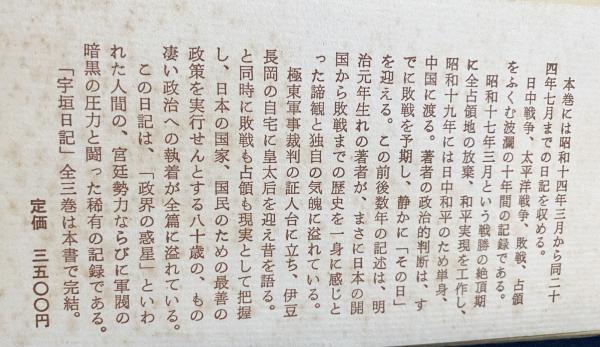 本巻には昭和十四年三月から同二十
四年七月までの日記を収める。
日中戦争、太平洋戦争、敗戦、占領
をふくむ波瀾の十年間の記録である。
昭和十七年三月という戦勝の絶頂期
に全占領地の放棄、和平実現を工作し、
昭和十九年には日中和平のため単身、
中国に渡る。著者の政治的判断は、す
でに敗戦を予期し、静かに「その日」
を迎える。この前後数年の記述は、明
治元年生れの著者が、まさに日本の開
国から敗戦までの歴史を一身に感じと
った諦観と独自の気魄に溢れている。
極東軍事裁判の証人台に立ち、伊豆
長岡の自宅に皇太后を迎え昔を語る。
と同時に敗戦も占領も現実として把握
し、日本の国家、国民のための最善の
政策を実行せんとする八十歳の、もの
凄い政治への執着が全篇に溢れている。
この日記は、「政界の惑星」といわ
れた人間の、宮廷勢力ならびに軍閥の
暗黒の圧力と闘った稀有の記録である。
「宇垣日記」全三巻は本書で完結。
定価 三五〇〇円